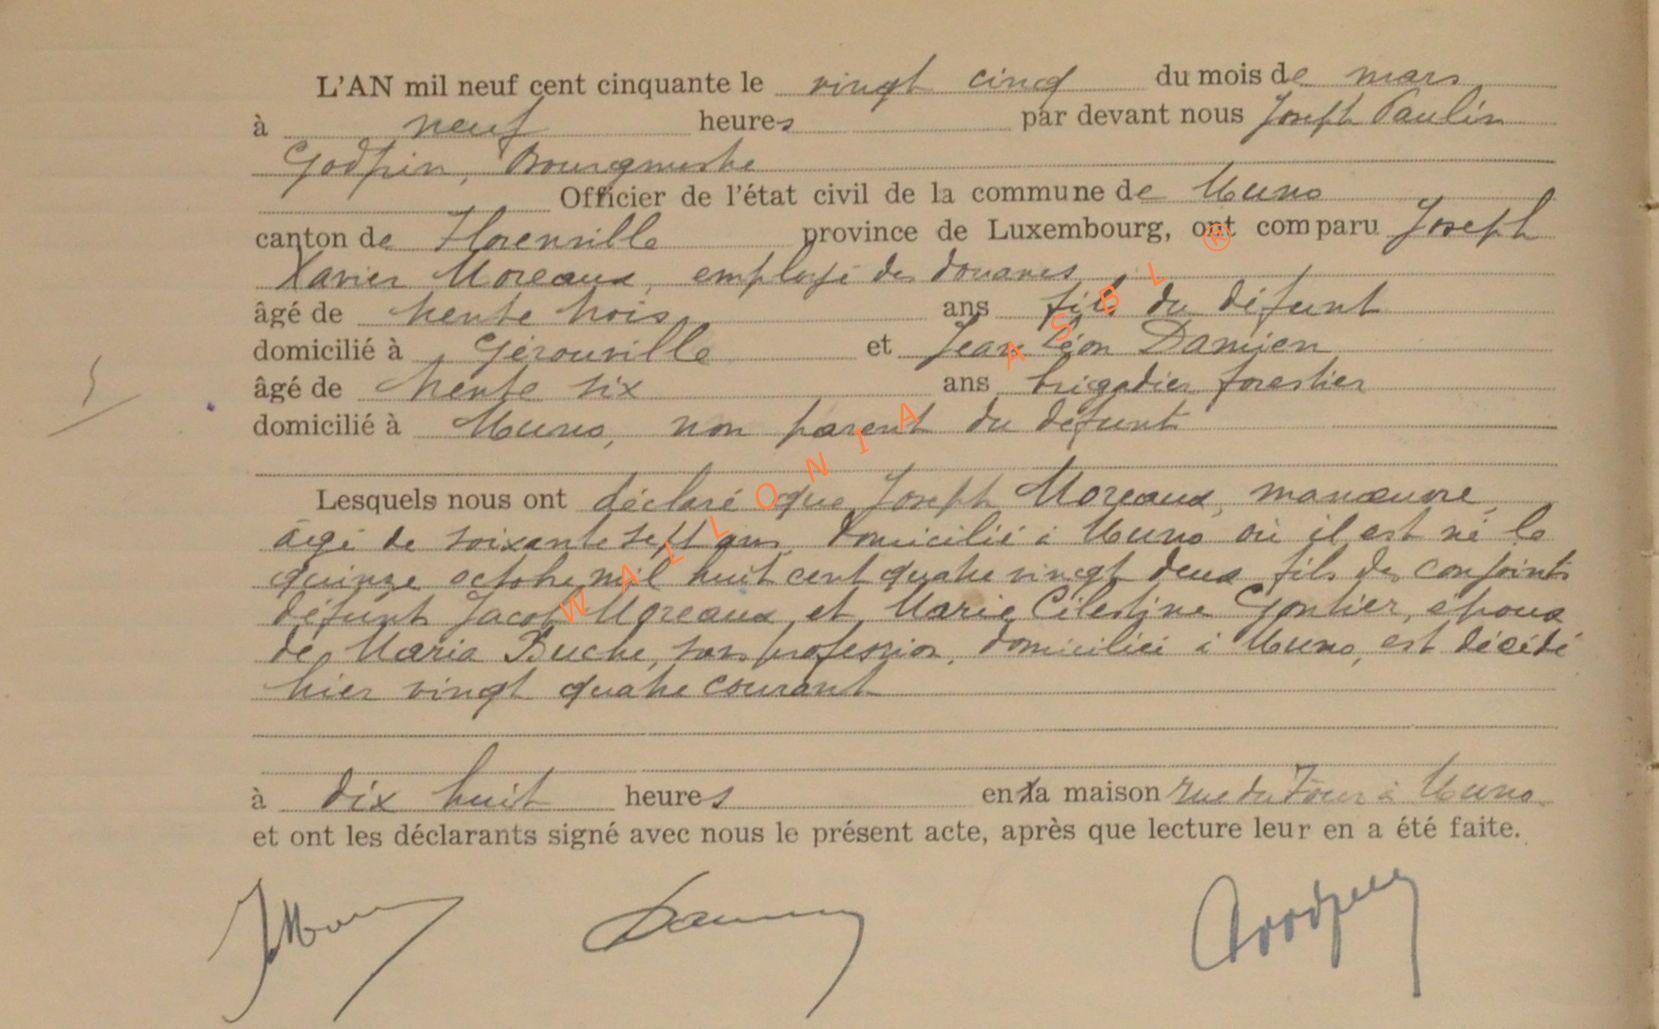 L'AN mil neuf cent cinquante le vingt cinq du mois de mars
à neuf heures par devant nous Joseph Paulin
Godfrin, Bourgmestre
Officier de l'état civil de la commune de Muno
canton de Florenville province de Luxembourg, ont comparu Joseph
Xavier Moreaux, employé des douanes
âgé de trente trois ans fils du défunt
domicilié à Gérouville et Jean Léon Damien
âgé de trente six ans brigadier forestier
domicilié à Muno, non parent du défunt
Lesquels nous ont déclaré que Joseph Moreaux, manœuvre,
âgé de soixante sept ans, domicilié à Muno où il est né le
quinze octobre mil huit cent quatre vingt deux fils des conjoints
défunts Jacob Moreaux et Marie Célestine Gontier, époux
de Maria Buche, sans profession, domiciliée à Muno, est décédé
hier vingt quatre courant
à dix huit heures en la maison rue du Four à Muno
et ont les déclarants signé avec nous le présent acte, après que lecture leur en a été faite.
WALLONIA ASBL ®